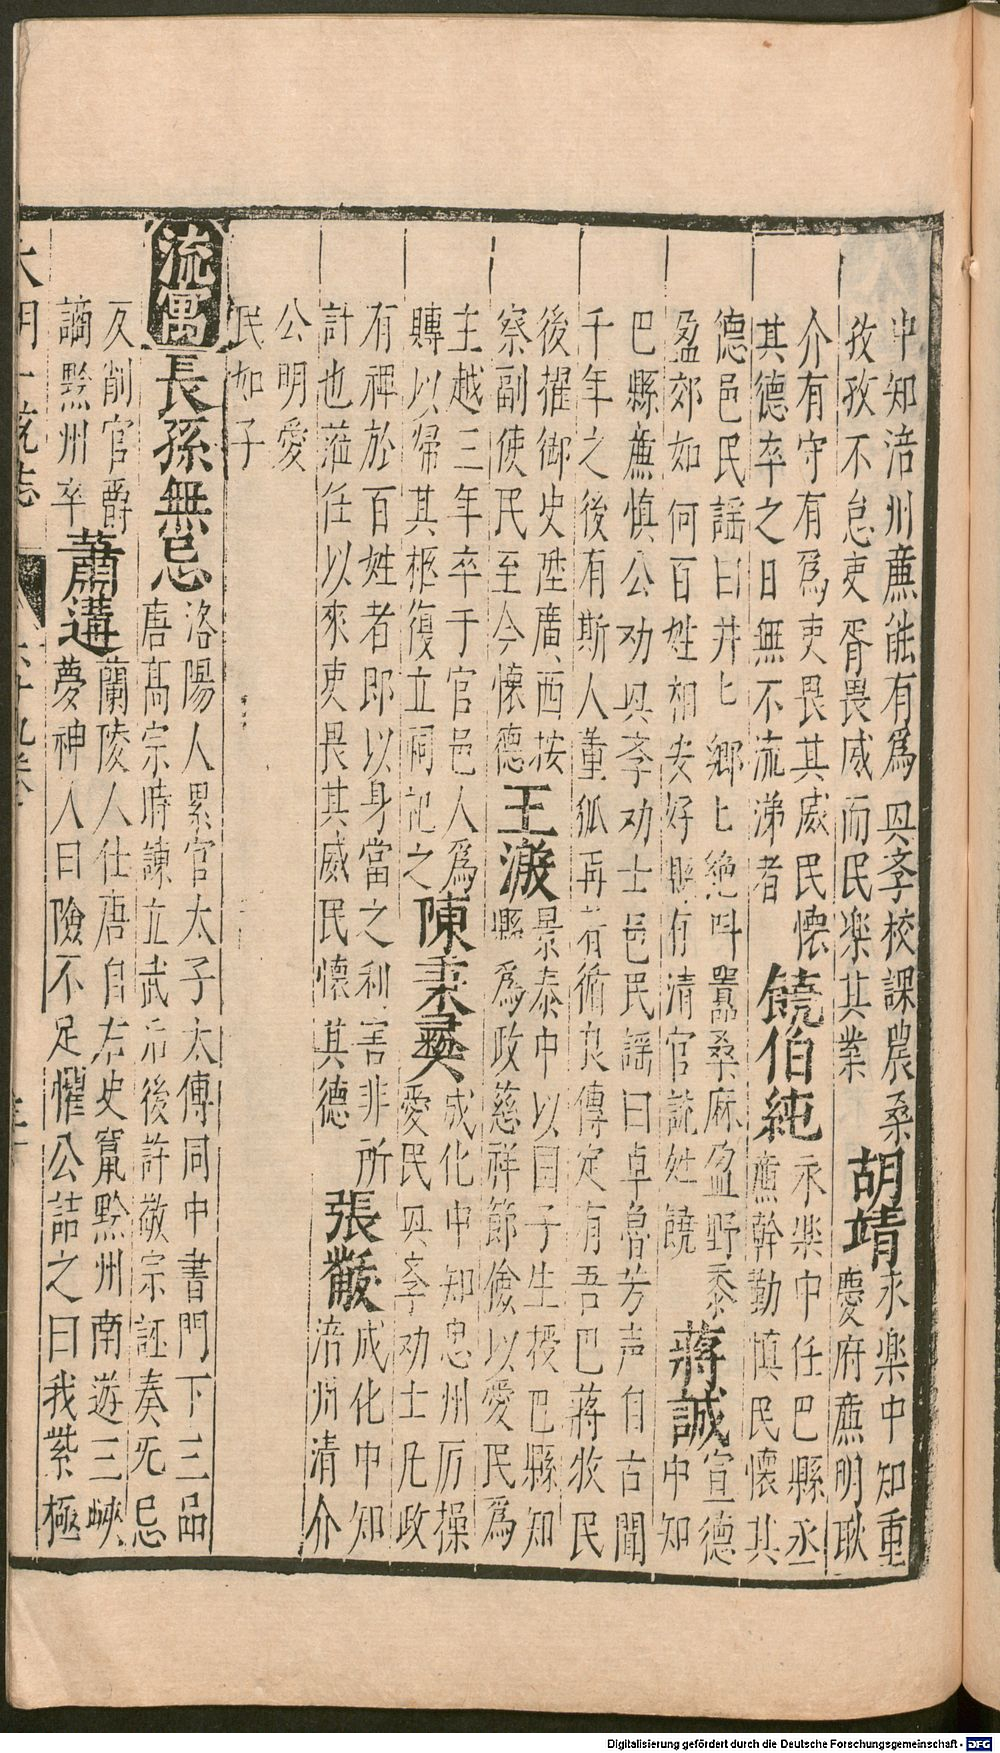 中知涪州廉能有爲興斈校課農桑
孜孜不怠吏胥畏威而民楽其業
胡靖
永楽中知重
慶府廉明耿
介有守有爲吏畏其威民懷
其德卒之日無不流涕者
饒伯純
永楽中任巴縣丞
廉幹勤慎民懷其
德邑民謡曰井匕鄉匕絶叫嚻桑麻盈野黍
盈郊如何百姓相安好縣有清官説姓饒
蔣誠
宣德
中知
巴縣廉慎公劝興斈劝士邑民謡曰卓魯芳声自古聞
千年之後有斯人董狐再有循良傳定有吾巴蔣牧民
後擢御史陞廣西按
察副使民至今懷德
王漵
景泰中以国子生授巴縣知
縣爲政慈祥節儉以愛民爲
主越三年卒于官邑人爲
賻以帰其柩復立祠記之
陳秉彛
成化中知忠州厉操
愛民興斈劝士凡政
有裨於百姓者即以身當之利害非所
計也蒞任以來吏畏其威民懷其德
張黻
成化中知
涪州清介
公明愛
民如子
流寓
長孫無忌
洛陽人累官太子太傅同中書門下三品
唐高宗時諫立武后後許敬宗誣奏无忌
反削官爵
謫黔州卒
蕭遘
蘭陵人仕唐自右史竄黔州南遊三峽
夢神人曰險不足懼公詰之曰我紫極
大明一統志
六十九卷
Digitalisierung gefördert durch die Deutsche Forschungsgemeinschaft - DFG